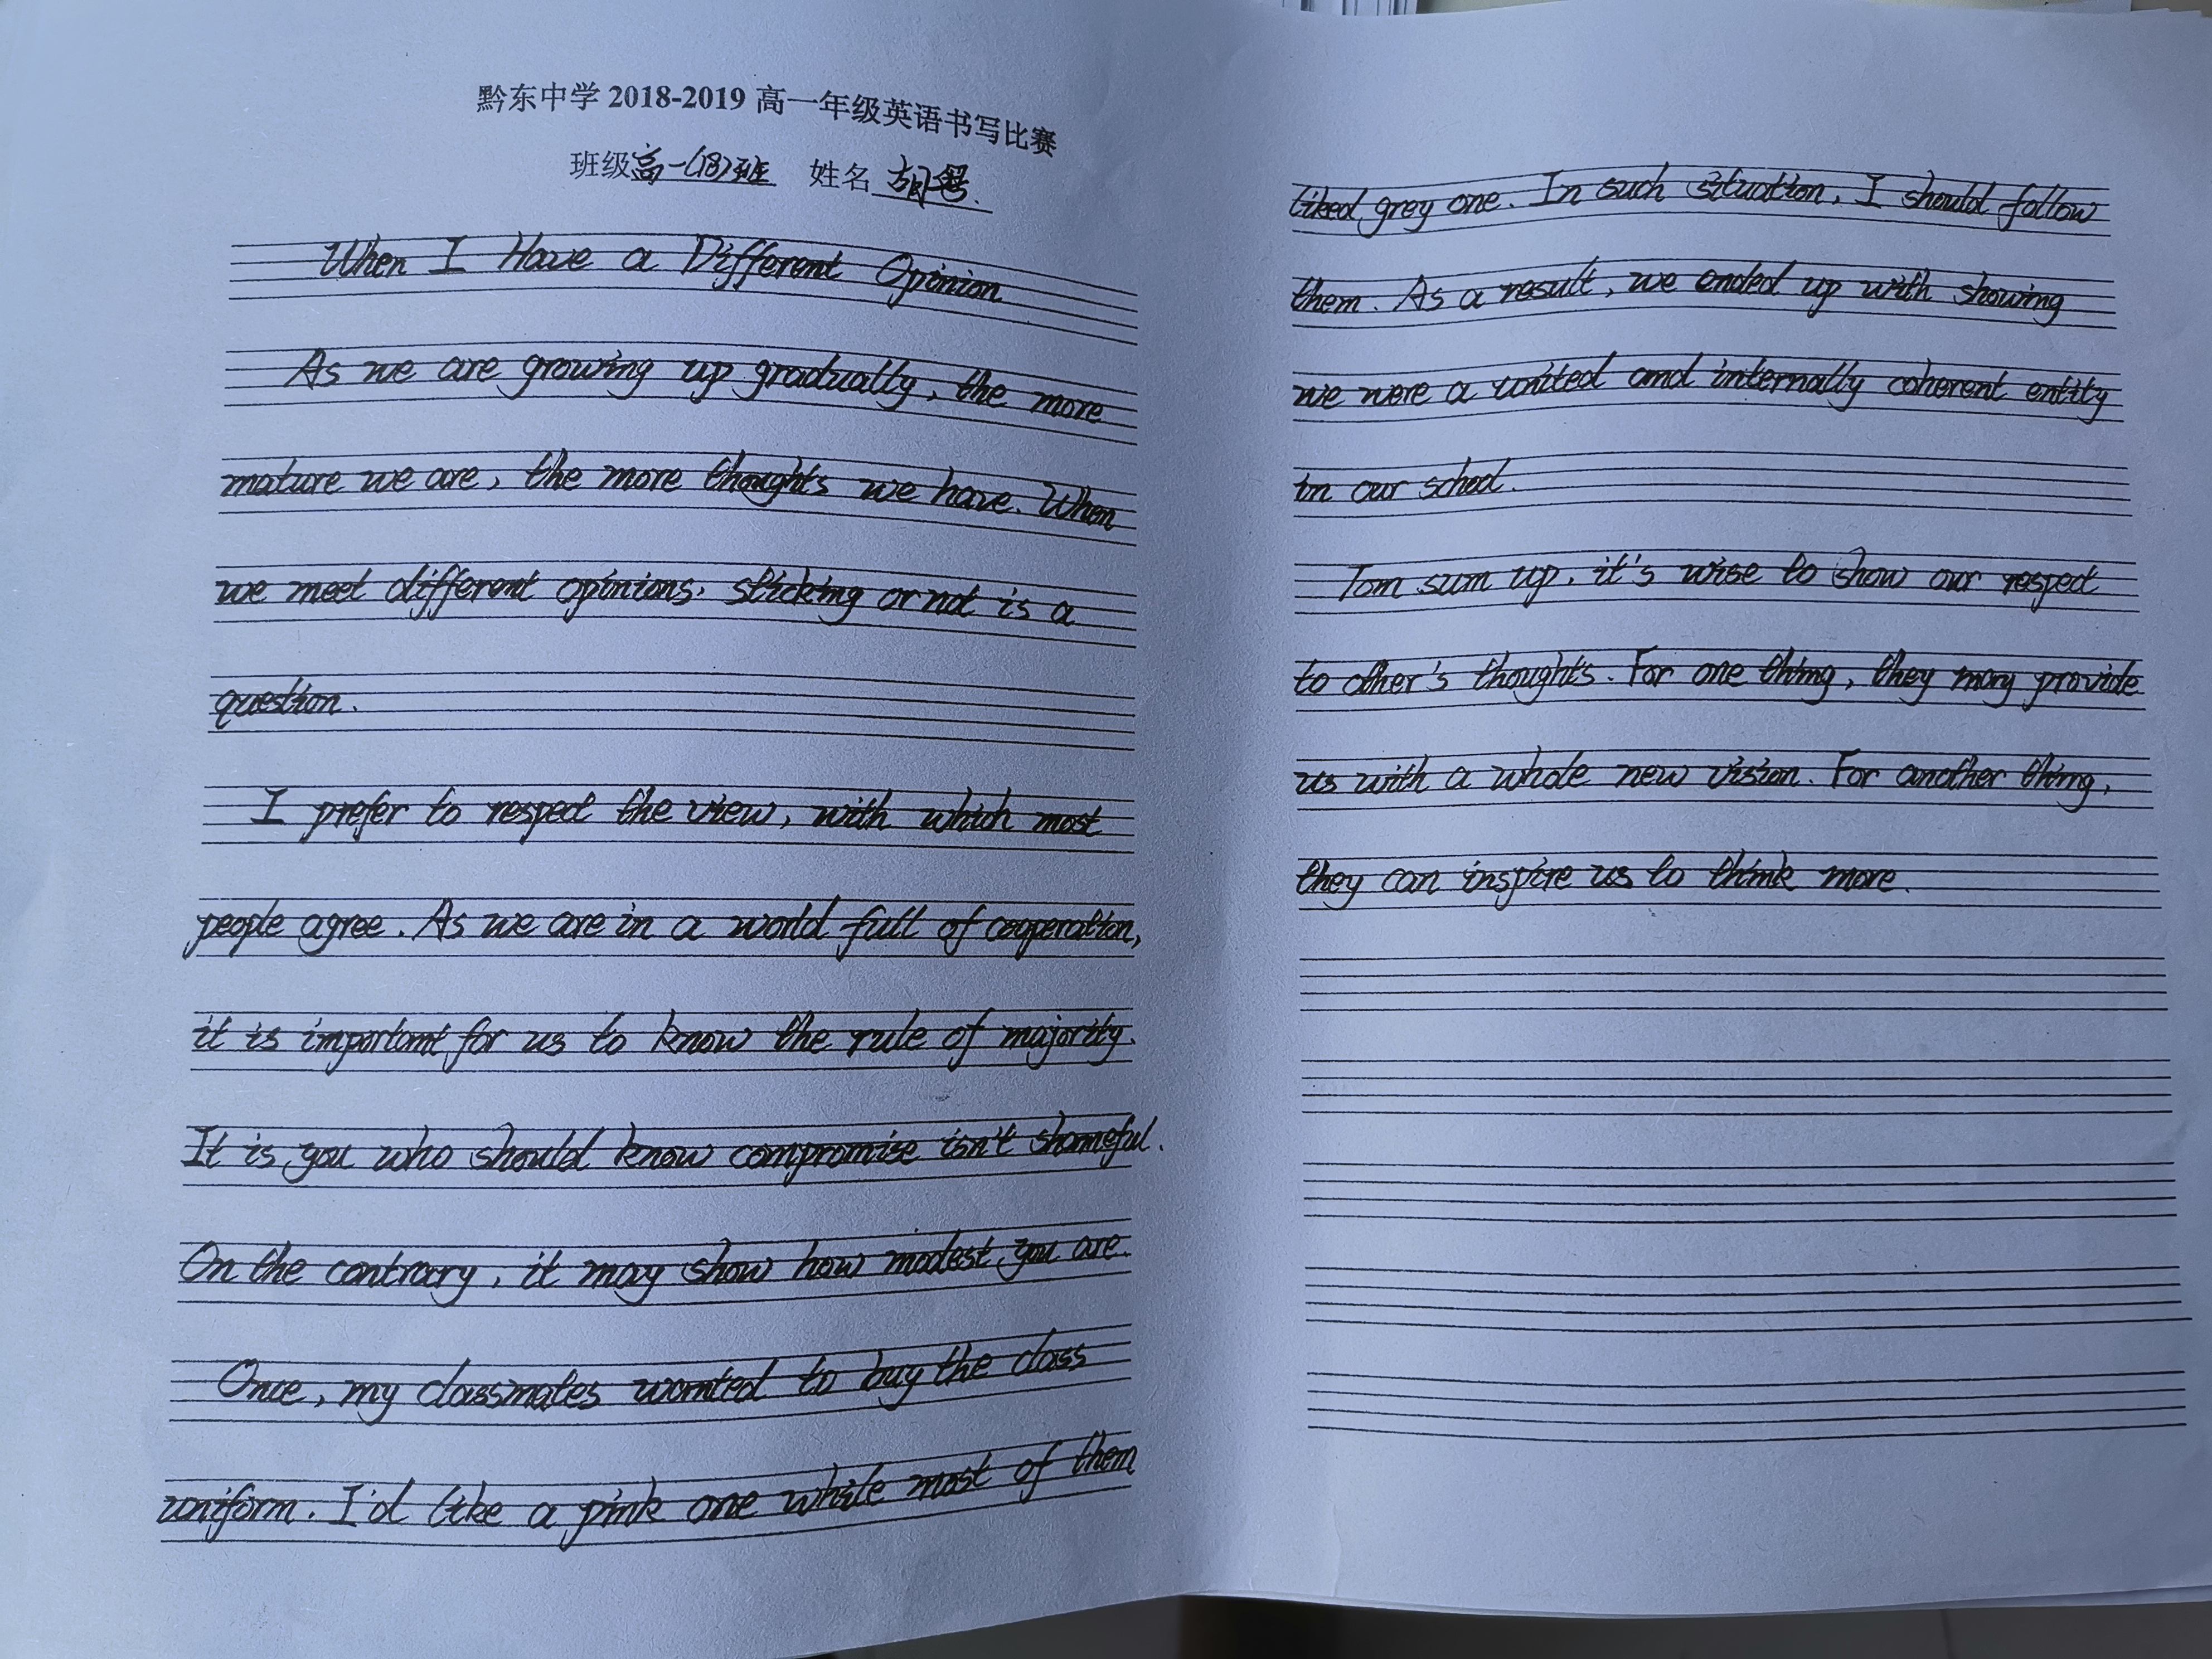 黔东中学 2018-2019 高一年级英语书写比赛
班级高一(18)班 姓名 胡
When I Have a Different Opinion
As we are growing up gradually, the more
mature we are, the more thoughts we have. When
we meet different opinions, sticking or not is a
question.
I prefer to respect the view, with which most
people agree. As we are in a world full of cooperation,
it is important for us to know the rule of majority.
It is you who should know compromise isn't shameful.
On the contrary, it may show how modest you are.
Once, my classmates wanted to buy the class
uniform. I'd like a pink one while most of them
liked grey one. In such situation, I should follow
them. As a result, we ended up with showing
we were a united and internally coherent entity
in our school.
Tom sum up, it's wise to show our respect
to other's thoughts. For one thing, they may provide
us with a whole new vision. For another thing,
they can inspire us to think more.